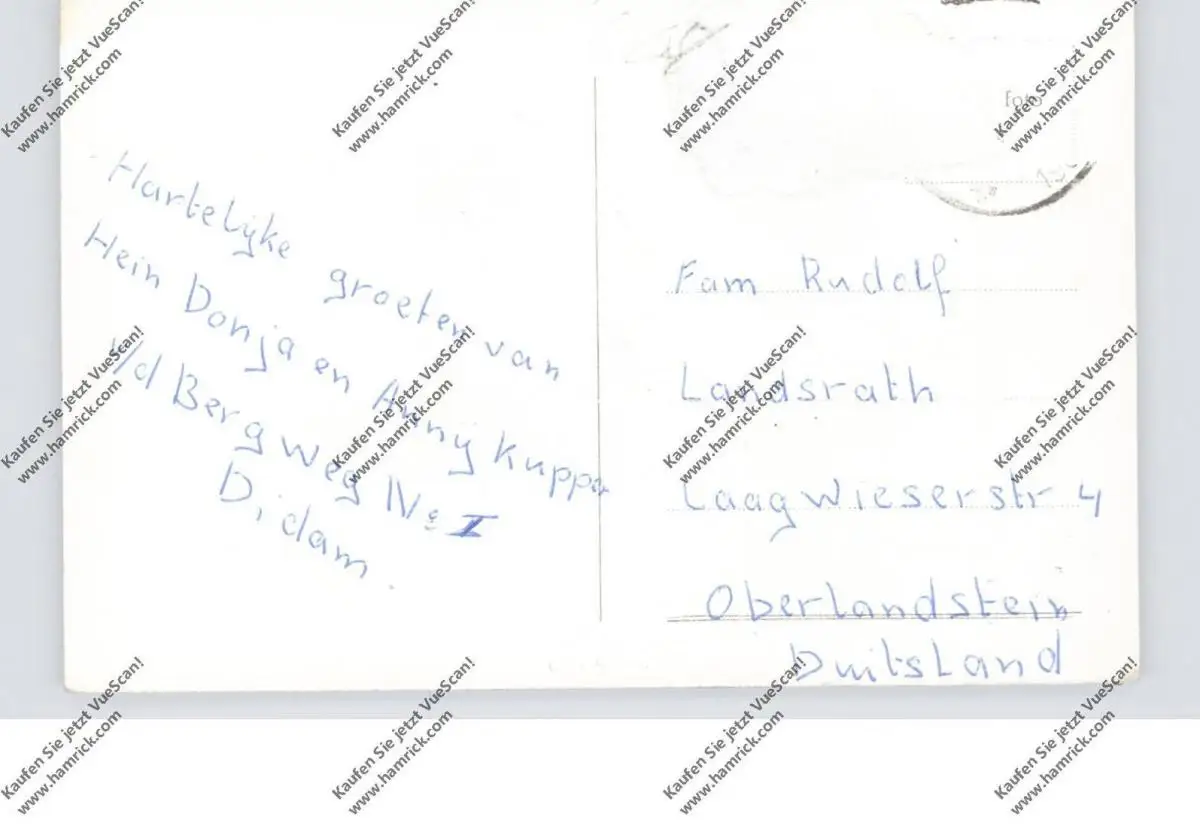 Hartelijke groeten van
Hein Donja en Annÿ Kupper
v/d Berg weg No I
Didam.
foto
Fam Rudolf
Landsrath
Laagwieserstr 4
Oberlandstein
Duitsland
Kaufen Sie jetzt VueScan!
www.hamrick.com
Kaufen Sie jetzt VueScan!
www.hamrick.com
Kaufen Sie jetzt VueScan!
www.hamrick.com
Kaufen Sie jetzt VueScan!
www.hamrick.com
Kaufen Sie jetzt VueScan!
www.hamrick.com
Kaufen Sie jetzt VueScan!
www.hamrick.com
Kaufen Sie jetzt VueScan!
www.hamrick.com
Kaufen Sie jetzt VueScan!
www.hamrick.com
Kaufen Sie jetzt VueScan!
www.hamrick.com
Kaufen Sie jetzt VueScan!
www.hamrick.com
Kaufen Sie jetzt VueScan!
www.hamrick.com
Kaufen Sie jetzt VueScan!
www.hamrick.com